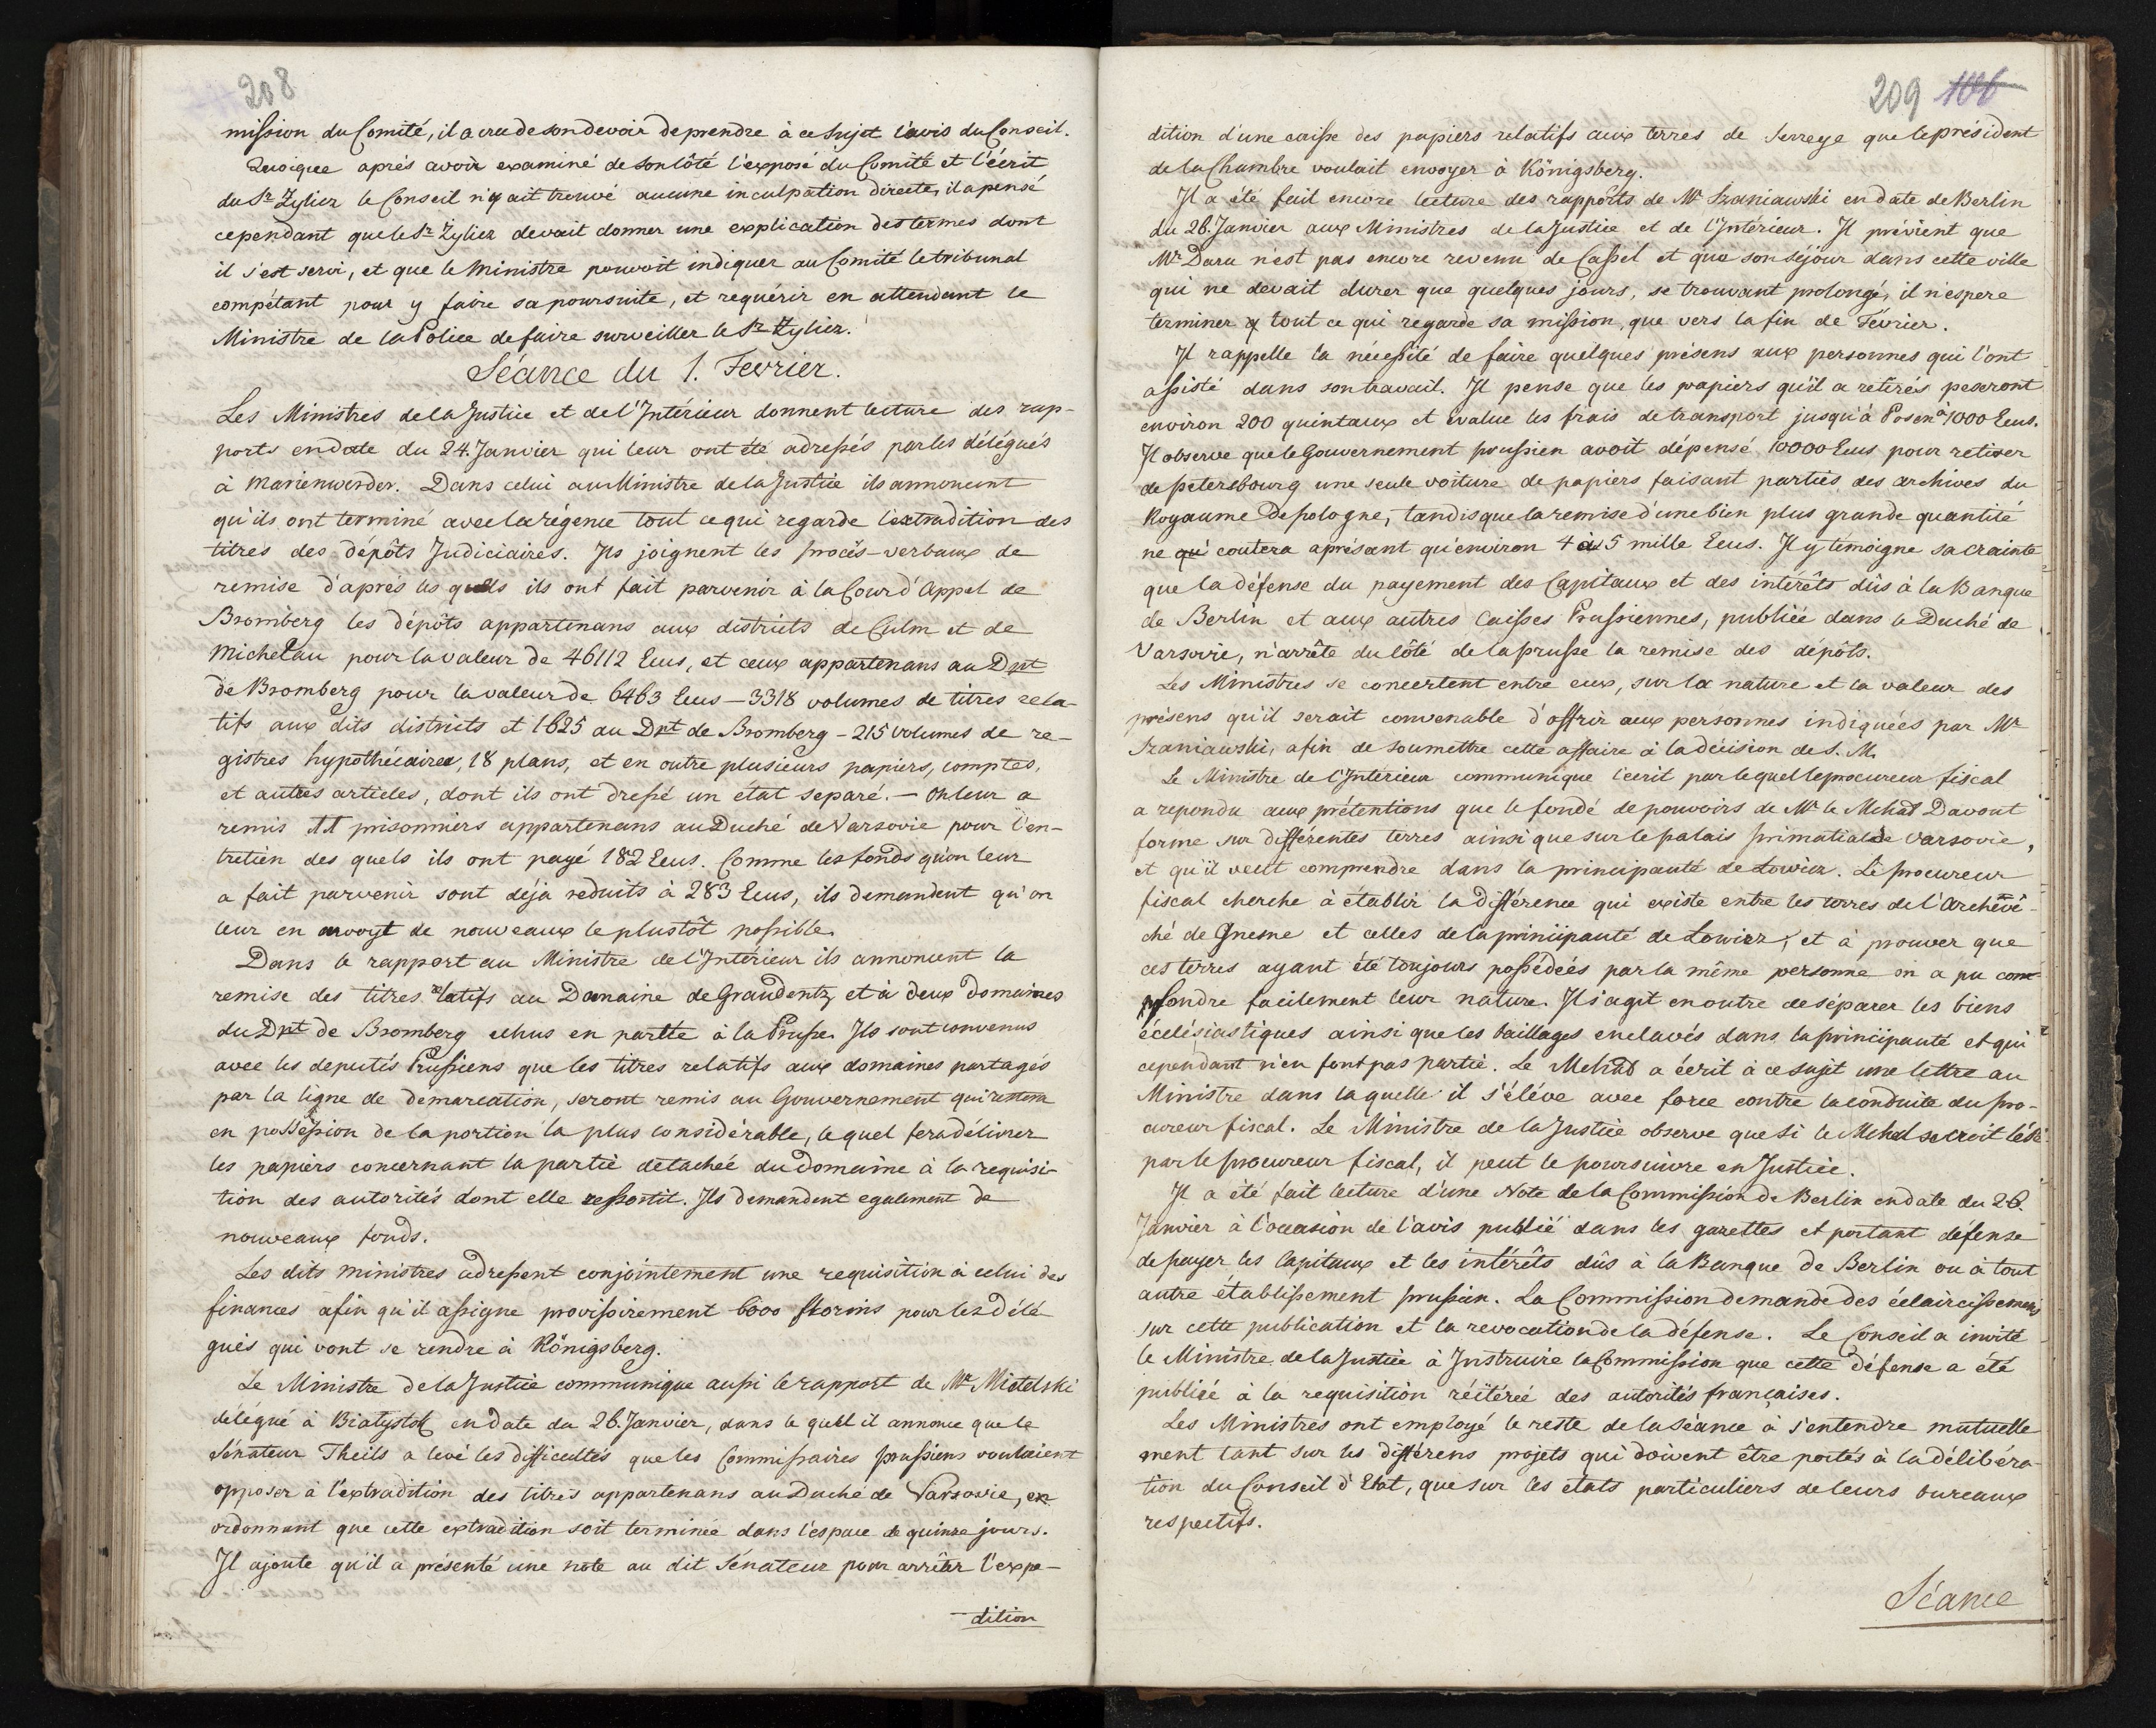 208
mission du Comité, il a cru de son devoir de prendre à ce sujet l'avis du Conseil.
Quoique après avoir examiné de son côté l'exposé du Comité et l'écrit
du Sr Zylier le Conseil n'y ait trouvé aucune inculpation directe, il a pensé
cependant que le Sr Zylier devait donner une explication des termes dont
il s'est servi, et que le Ministre pouvoit indiquer au Comité le tribunal
compétant pour y faire sa poursuite, et requérir en attendant le
Ministre de la Police de faire surveiller le Sr Zylier.
Séance du 1. Fevrier.
Les Ministres de la Justice et de l'Intérieur donnent lecture des rap-
ports en date du 24. Janvier qui leur ont été adressés par les délégués
à Marienwerder. Dans celui au Ministre de la Justice ils annoncent
qu'ils ont terminé avec la régence tout ce qui regarde l'extradition des
titres des dépôts Judiciaires. Ils joignent les procès-verbaux de
remise d'après les quels ils ont fait parvenir à la Cour d'Appel de
Bromberg les dépôts appartenans aux districts de Culm et de
Michelau pour la valeur de 46112 Ecus, et ceux appartenans au Dpt
de Bromberg pour la valeur de 6463 Ecus – 3318 volumes de titres rela-
tifs aux dits districts et 1625 au Dpt de Bromberg – 215 volumes de re-
gistres hypothécaires, 18 plans, et en outre plusieurs papiers, comptes,
et autres articles, dont ils ont dressé un état separé. – On leur a
remis 11 prisonniers appartenans au Duché de Varsovie pour l'en-
tretien des quels ils ont payé 182 Ecus. Comme les fonds qu'on leur
a fait parvenir sont déja reduits à 283 Ecus, ils demandent qu'on
leur en envoyt de nouveaux le plustôt possible.
Dans le rapport au Ministre de l'Intérieur ils annoncent la
remise des titres relatifs au Domaine de Graudentz et à deux Domaines
du Dpt de Bromberg echus en partie à la Prusse. Ils sont convenus
avec les deputés Prussiens que les titres relatifs aux domaines partagés
par la ligne de demarcation, seront remis au Gouvernement qui restera
en possession de la portion la plus considérable, lequel fera délivrer
les papiers concernant la partie detachée du Domaine à la requisi-
tion des autorités dont elle ressortit. Ils demandent egalement de
nouveaux fonds.
Les dits ministres adressent conjointement une requisition à celui des
finances afin qu'il assigne provisoirement 6000 florins pour les délé
gués qui vont se rendre à Königsberg.
Le Ministre de la Justice communique aussi le rapport de Mr Mielelski
délégué à Białystok en date du 26. Janvier, dans le quel il annonce que le
Sénateur Theils a levé les difficultés que les Commissaires prussiens voulaient
opposer à l'extradition des titres appartenans au Duché de Varsovie, en
ordonnant que cette extradition soit terminée dans l'espace de quinze jours.
Il ajoute qu'il a présenté une note au dit Sénateur pour arrêter l'expe-
dition
209 106
dition d'une caisse des papiers relatifs aux terres de Serreye que le président
de la Chambre voulait envoyer à Königsberg.
Il a été fait encore lecture des rapports de Mr Szaniawski en date de Berlin
du 26. Janvier aux Ministres de la Justice et de l'Intérieur. Il prévient que
Mr Daru n'est pas encore revenu de Cassel et que son séjour dans cette ville
qui ne devait durer que quelques jours, se trouvant prolongé, il n'espere
terminer tout ce qui regarde sa mission, que vers la fin de Février.
Il rappelle la nécessité de faire quelques présens aux personnes qui l'ont
assisté dans son travail. Il pense que les papiers qu'il a retirés peseront
environ 200 quintaux et évalue les frais de transport jusqu'à Posen à 1000 Ecus.
Il observe que le Gouvernement prussien avoit dépensé 10000 Ecus pour retirer
de petersbourg une seule voiture de papiers faisant parties des archives du
Royaume de pologne, tandis que la remise d'une bien plus grande quantité
ne coutera apresant qu'environ 4 à 5 mille Ecus. Il y témoigne sa crainte
que la défense du payement des Capitaux et des intérêts dûs à la Banque
de Berlin et aux autres Caisses Prussiennes, publiée dans le Duché de
Varsovie, n'arrête du côté de la prusse la remise des dépôts.
Les Ministres se concertent entre eux, sur la nature et la valeur des
présens qu'il serait convenable d'offrir aux personnes indiquées par Mr
Szaniawski, afin de soumettre cette affaire à la décision de S. M.
Le Ministre de l'Intérieur communique l'ecrit par lequel le procureur fiscal
a repondu aux prétentions que le fondé de pouvoirs de Mr le Mchal Davout
forme sur différentes terres ainsi que sur le palais primatial de Varsovie,
et qu'il veut comprendre dans la principauté de Lowicz. Le procureur
fiscal cherche à établir la différence qui existe entre les terres de l'Archevê-
ché de Gnesne et celles de la principauté de Lowicz, et à prouver que
ces terres ayant été toujours possédées par la même personne on a pu con-
fondre facilement leur nature. Il s'agit en outre de séparer les biens
écclésiastiques ainsi que les baillages enclavés dans la principauté et qui
cependant n'en font pas partie. Le Mchal a écrit à ce sujet une lettre au
Ministre dans laquelle il s'élève avec force contre la conduite du pro-
cureur fiscal. Le Ministre de la Justice observe que si le Mchal se croit lésé
par le procureur fiscal, il peut le poursuivre en Justice.
Il a été fait lecture d'une Note de la Commission de Berlin en date du 26.
Janvier à l'occasion de l'avis publié dans les gazettes et portant défense
de payer les Capitaux et les intérêts dûs à la Banque de Berlin ou à tout
autre établissement prussien. La Commission demande des éclaircissemens
sur cette publication et la revocation de la défense. Le Conseil a invité
le Ministre de la Justice à Instruire la Commission que cette défense a été
publiée à la requisition réitérée des autorités françaises.
Les Ministres ont employé le reste de la Séance à s'entendre mutuelle
ment tant sur les différens projets qui doivent être portés à la délibéra-
tion du Conseil d'Etat, que sur les etats particuliers de leurs bureaux
respectifs.
Séance